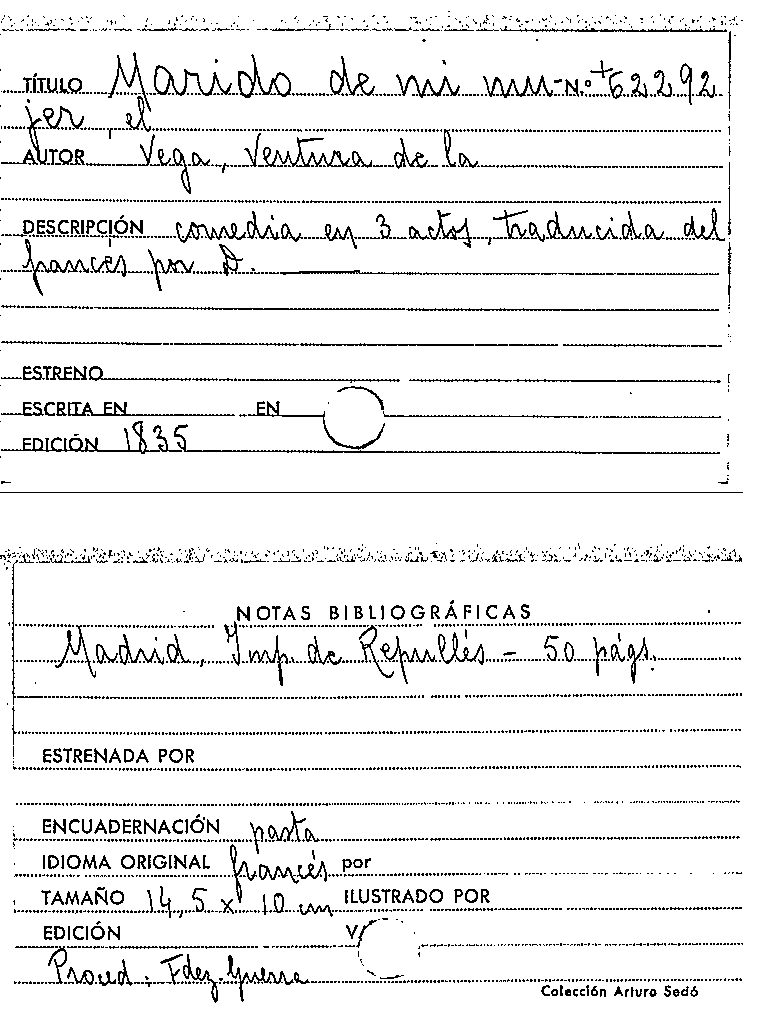 TÍTULO Marido de mi mu- N.º +62292
jer, el
AUTOR Vega, Ventura de la
DESCRIPCIÓN comedia en 3 actos, traducida del
francés por D. ______
ESTRENO
ESCRITA EN EN
EDICIÓN 1835
NOTAS BIBLIOGRÁFICAS
Madrid, Imp. de Repullés - 50 págs.
ESTRENADA POR
ENCUADERNACIÓN pasta
IDIOMA ORIGINAL francés por
TAMAÑO 14,5 x 10 cm ILUSTRADO POR
EDICIÓN V/
Proced: Fdez-Guerra
Colección Arturo Sedó